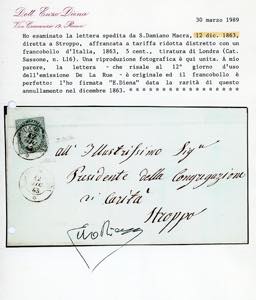 Dott. Enzo Diena
Via Crescenzio 19, Roma
30 marzo 1989
Ho esaminato la lettera spedita da S.Damiano Macra, 12 dic. 1863,
diretta a Stroppo, affrancata a tariffa ridotta distretto con un
francobollo d'Italia, 1863, 5 cent., tiratura di Londra (Cat.
Sassone, n. L16). Una riproduzione fotografica è qui unita. A mio
parere, la lettera - che risale al 12° giorno d'uso
dell'emissione De La Rue - è originale ed il francobollo è
perfetto. Ho firmato "E.Diena" data la rarità di questo
annullamento nel dicembre 1863.
all' Illustrissimo Sigr
Presidente della Congregazione
di Carità
Stroppo
12
DIC
63